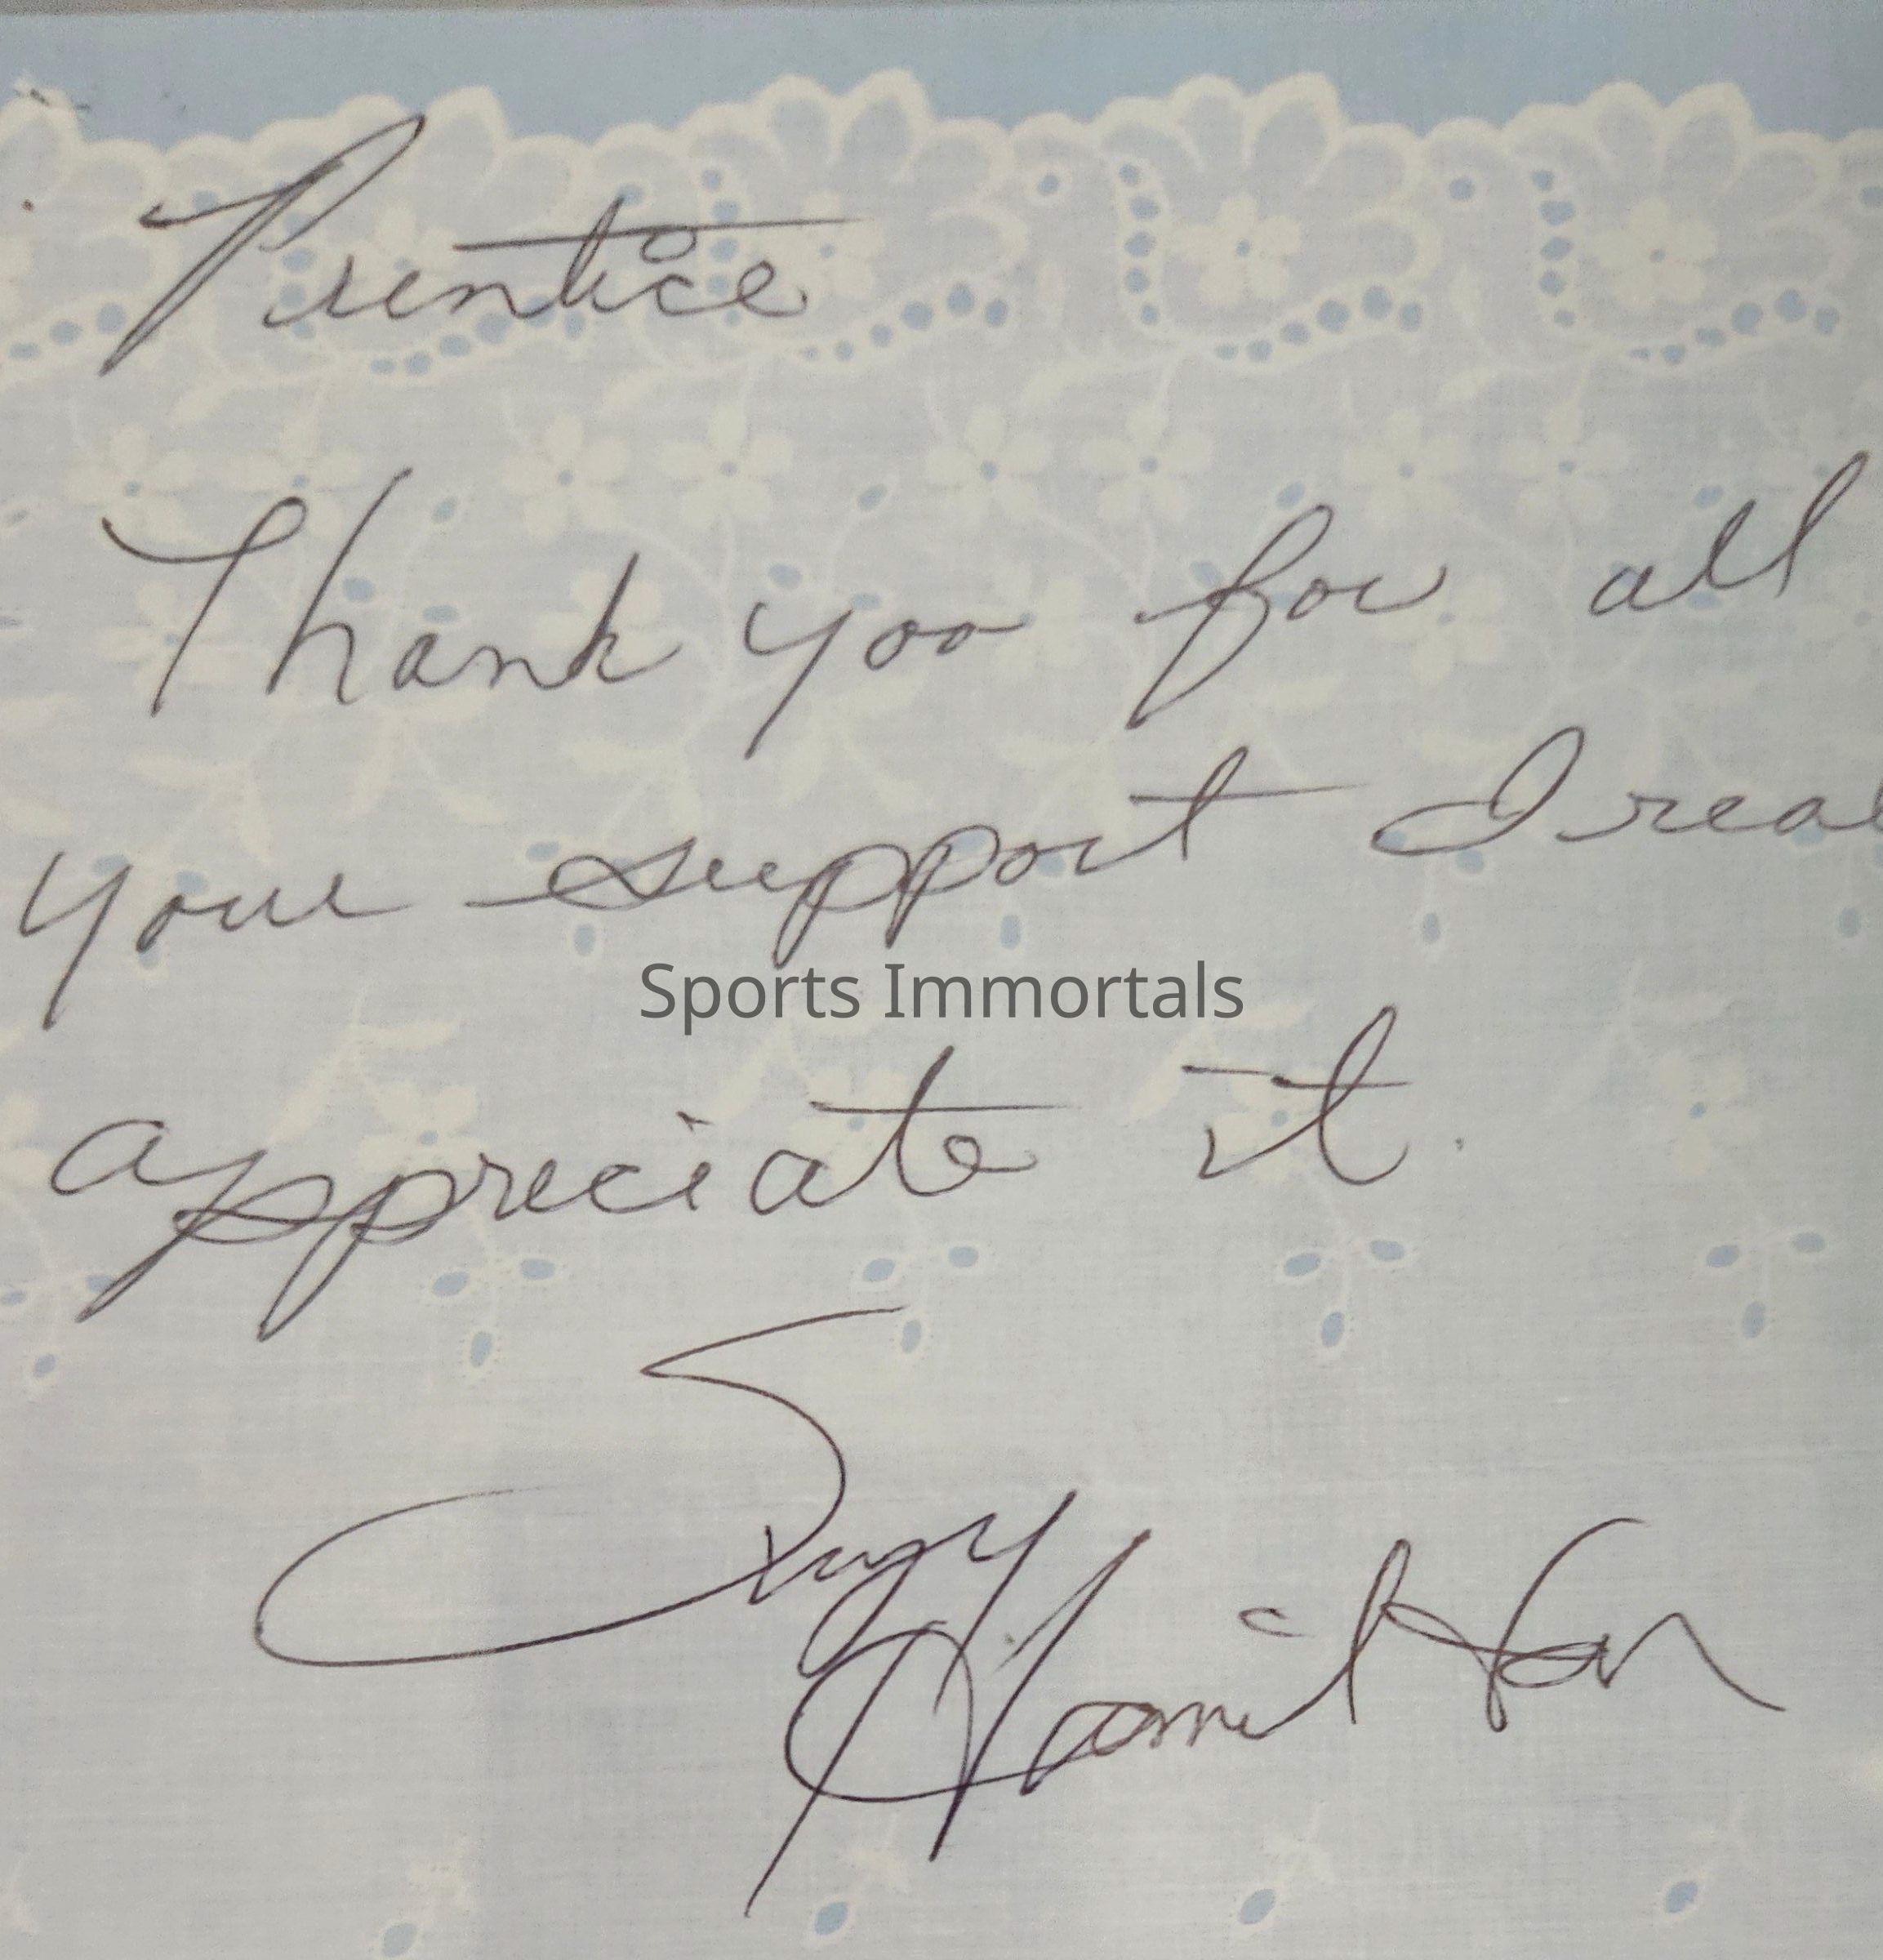 Prentice
Thank you for all
your support I real
Sports Immortals
appreciate it.
Suzy
Hamilton